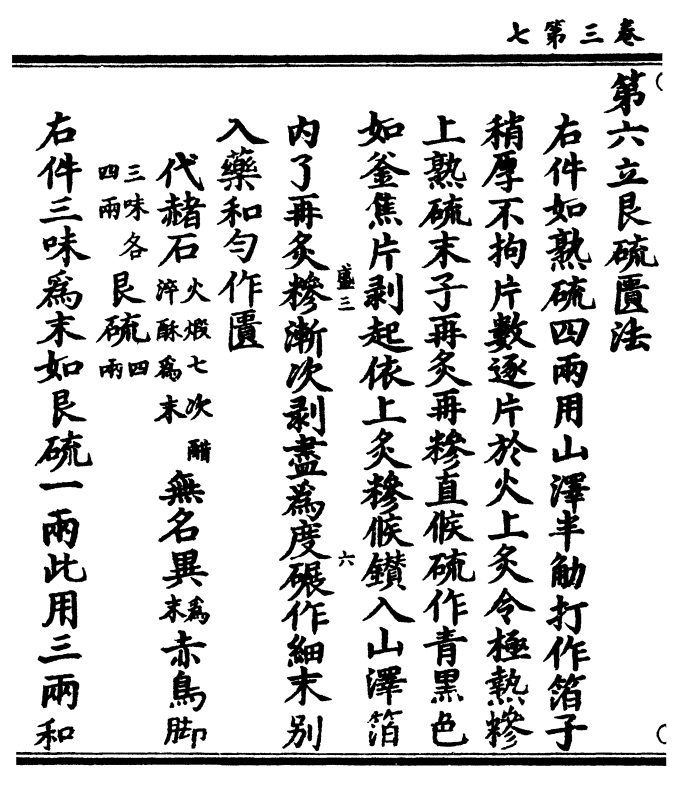 七第三卷
第六立艮硫匱法
右件如熟硫四兩用山澤半觔打作箔子
稍厚不拘片數逐片於火上炙令極熱糝
上熟硫末子再炙再糝直候硫作青黑色
如釜焦片剥起依上炙糝候鑚入山澤箔
盛三
六
内了再炙糝漸次剥盡為度碾作細末别
入藥和勻作匱
代赭石火煅七次醋淬酥為末無名異為末赤烏脚
三味各四兩艮硫四兩
右件三味爲末如艮硫一兩此用三兩和